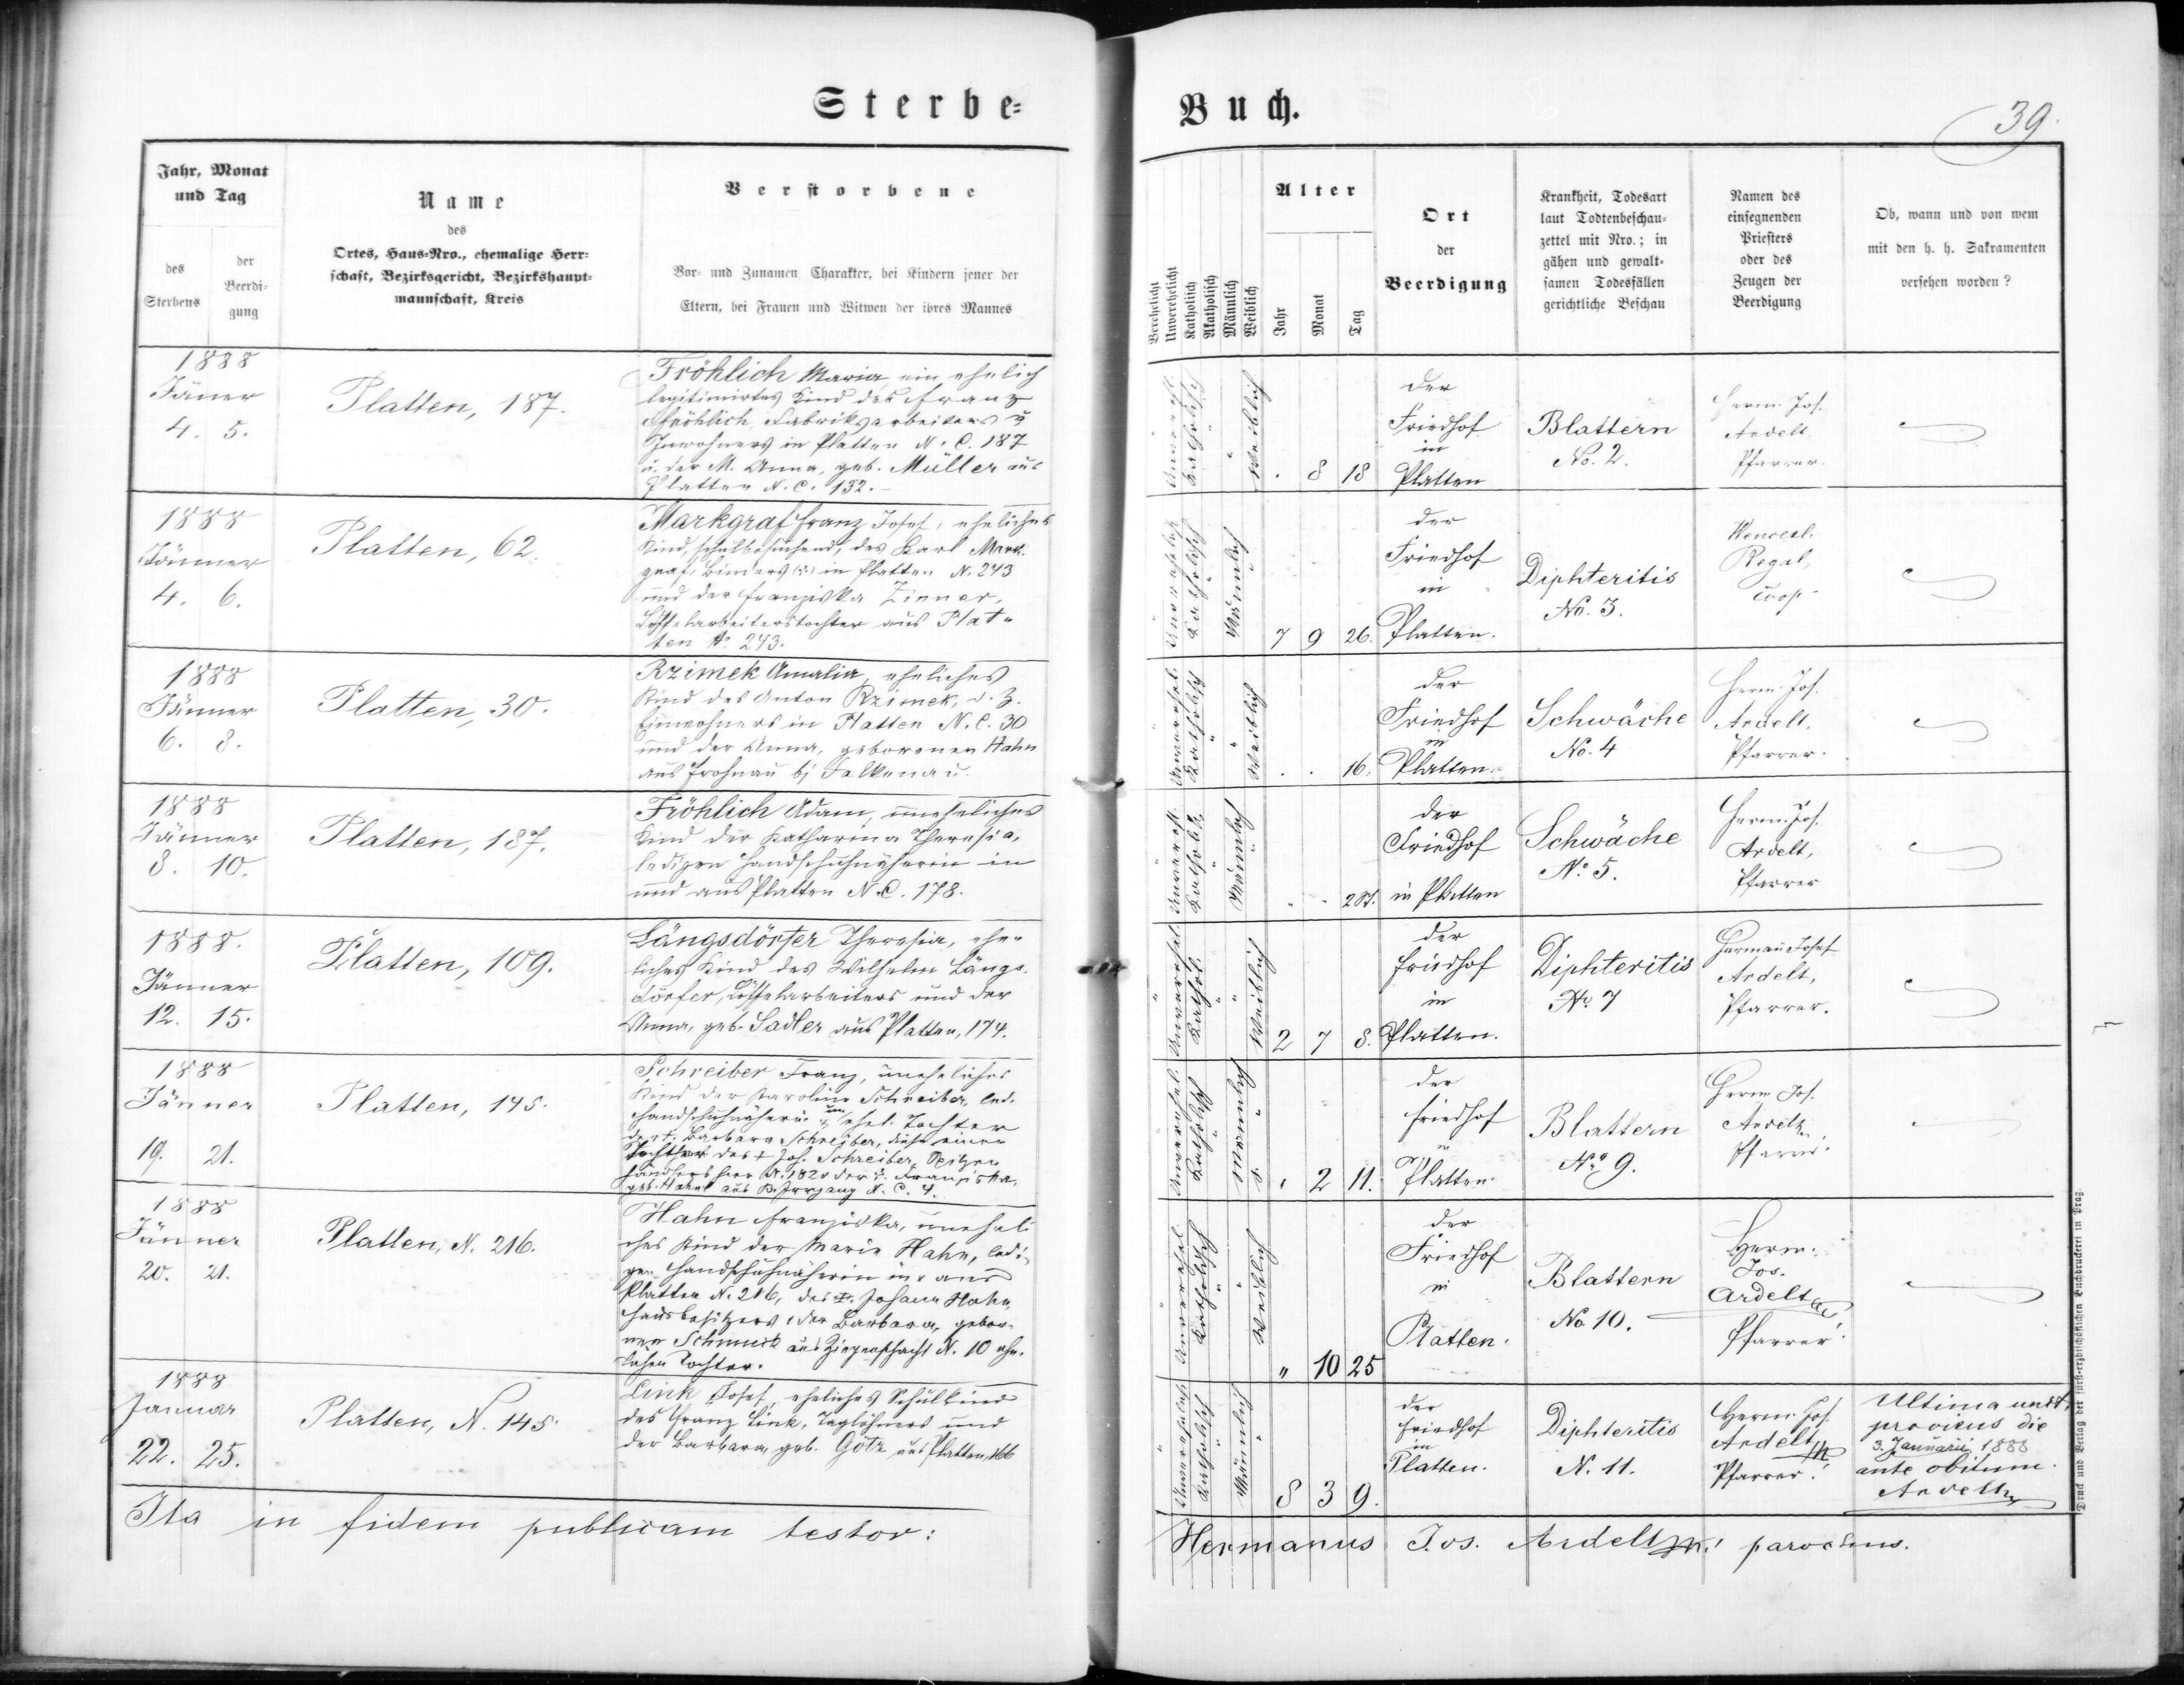 Sterbe-
Buch.
39.
Jahr, Monat
und Tag
des
Sterbens
der
Beerdi-
gung
Name
des
Ortes, Haus-Nro., ehemalige Herr-
schaft, Bezirksgericht, Bezirkshaupt-
mannschaft, Kreis
Verstorbene
Vor- und Zunamen, Charakter, bei Kindern jener der
Eltern, bei Frauen und Witwen der ihres Mannes
Verehelicht
Unverehelicht
Katholisch
Akatholisch
Männlich
Weiblich
Alter
Jahr
Monat
Tag
Ort
der
Beerdigung
Krankheit, Todesart
laut Todtenbeschau-
zettel mit Nro.; in
gähen und gewalt-
samen Todesfällen
gerichtliche Beschau
Namen des
einsegnenden
Priesters
oder des
Zeugen der
Beerdigung
Ob, wann und von wem
mit den h. h. Sakramenten
versehen worden?
1888
Jäner
4. 5.
Platten, 187.
Fröhlich Maria, ein ehelich
legitimirtes Kind des Franz
Fröhlich Fabriksarbeiters u
Inwohners in Platten N. C. 187
u. der M. Anna, geb. Müller aus
Platten N. C. 132.
Katholisch
Weiblich
. 8 18
der
Friedhof
in
Platten
Blattern
No. 2.
Herm. Jos.
Ardelt
Pfarrer.
1888
Jänner
4. 6.
Platten, 62.
Markgraf Franz Josef, eheliches
Kind, schulbesuchend, des Karl Mark-
graf, in Platten N. 243
und der Franziska Zinner,
Löffelarbeiterstochter aus Plat-
ten No. 243.
Unverehelich
Katholisch
Männlich
7 9 26.
der
Friedhof
in
Platten.
Diphteritis
No. 3.
Wencesl.
Regal,
Coop.
1888
Jänner
6. 8.
Platten, 30.
Rzimek Amalia, eheliches
Kind des Anton Rzimek, d. Z.
Einwohners in Platten N. C. 30
und der Anna, geborenen Hahn
aus Frohnau bj Falkenau.
Unverehel.
Katholisch
Weiblich
. . 16.
der
Friedhof
in
Platten.
Schwäche
No. 4
Herm. Jos.
Ardelt,
Pfarrer.
1888
Jänner
8. 10.
Platten, 187.
Fröhlich Adam, uneheliches
Kind der Katharina Theresia,
ledigen Handschuhnäherin in
und aus Platten N. C. 178.
Männlich
der
Friedhof
in Platten
Schwäche
No. 5.
Herm. Jos.
Ardelt,
Pfarrer
1888.
Jänner
12. 15.
Platten, 109.
Längsdörfer Theresia, ehe-
liches Kind des Wilhelm Längs-
dörfer, Löffelarbeiters und der
Anna, geb. Sadler aus Platten, 174.
Unverehel.
Kathol.
Weiblich
2 7 8.
der
Friedhof
in
Platten.
Diphteritis
No. 7
Hermann Josef
Ardelt,
Pfarrer.
1888
Jänner
19. 21.
Platten, 145.
Schreiber Franz, uneheliches
Kind der Karoline Schreiber, led.
Handschuhnäherin unehel. Tochter
der † Barbara Schreiber, diese einer
Tochter des † Jos. Schreiber, Spitzen-
händlers hier N. 182 u der † Franziska,
geb. aus N. C. 4.
Unverehel.
Katholisch
Männlich
. 2 11.
der
Friedhof
in
Platten.
Blattern
No. 9.
Herm. Jos.
Ardelt
Pfarrer.
1888
Jänner
20. 21.
Platten, N. 216.
Hahn Franziska, uneheli-
ches Kind der Maria Hahn, ledi-
gen Handschuhnäherin in u aus
Platten N. 216, des † Johann Hahn,
Hausbesitzers u der Barbara, gebor-
nen Schmuck aus Ziegenschacht N. 10 ehe-
lichen Tochter.
Unverehel.
Katholisch
Weiblich
" 10 25
der
Friedhof
in
Platten.
Blattern
No. 10.
Herm.
Jos.
Ardelt
Pfarrer.
1888
Januar
22. 25.
Platten, N. 145.
Link Josef, eheliches Schulkind
des Franz Link, Taglöhners und
der Barbara, geb. Götz aus Platten, 166
Unverehelicht
Katholisch
Männlich
8 3 9.
der
Friedhof
in
Platten.
Diphteritis
N. 11.
Herm. Jos.
Ardelt
Pfarrer.
Ultima unct.
provisus die
3. Januarii 1888
ante obitum.
Ardelt
Ita in fidem publicam testor:
Hermanus Jos. Ardelt parochus.
Druck und Verlag der fürst-erzbischöflichen Buchdruckerei in Prag.